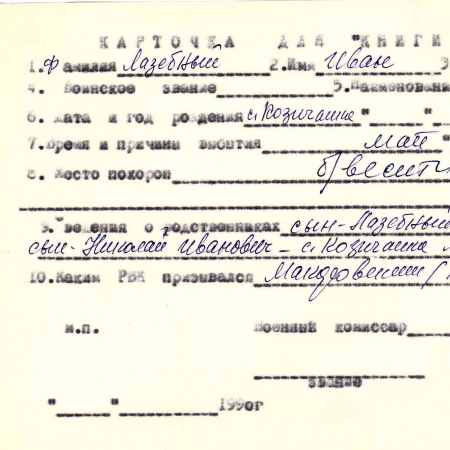 КАРТОЧКА ДЛЯ "КНИГИ
1. Фамилия Лазебный 2. Имя Иван 3
4. Воинское звание 5. Наименовани
6. Дата и год рождения с. Козичанка " "
7. Время и причины выбытия май
8. Место похорон б/вести
9. Сведения о родственниках сын - Лазебный
сын - Николай Иванович - с. Козичанка
10. Каким РВК призывался
м.п. Военный комиссар
звание
" " 199 0г